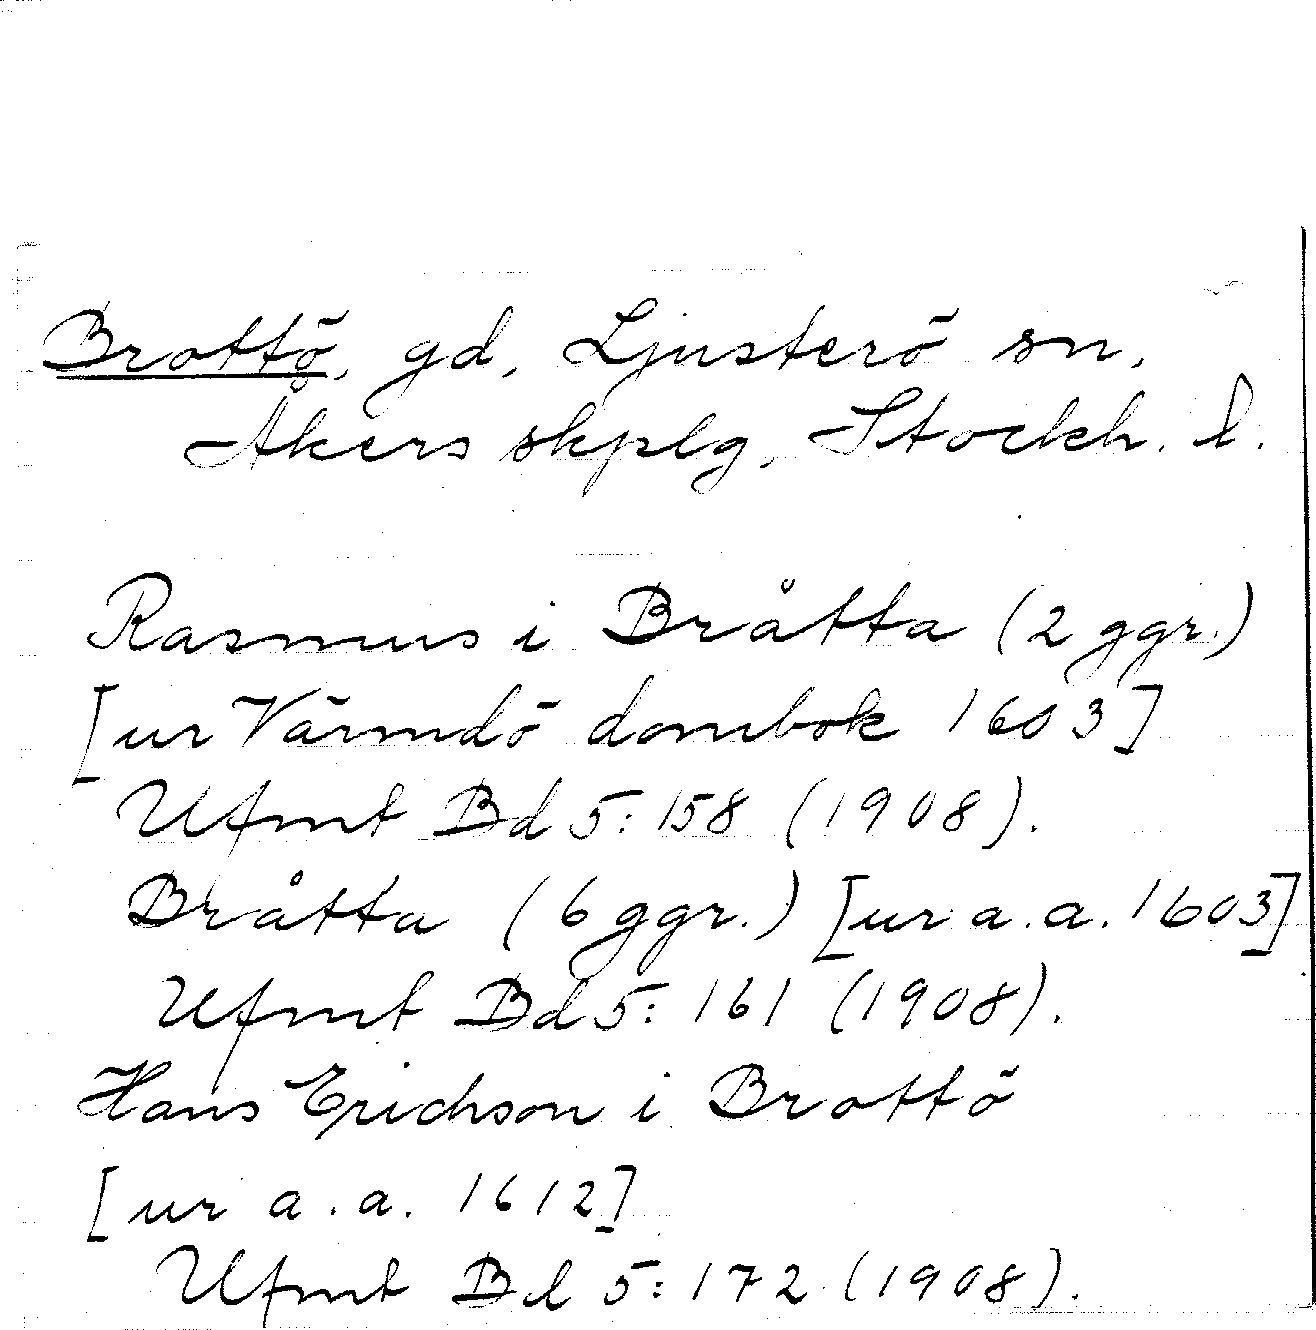 Brottö, gd, Ljusterö sn,
Åkers skplg, Stockh. l.
Rasmus i Bråtta (2 ggr.)
[ur Värmdö dombok 1603]
Ufmt Bd 5: 158 (1908).
Bråtta (6 ggr.) [ur a.a. 1603]
Ufmt Bd 5: 161 (1908).
Hans Erichson i Brottö
[ur a.a. 1612]
Ufmt Bd 5: 172 (1908).